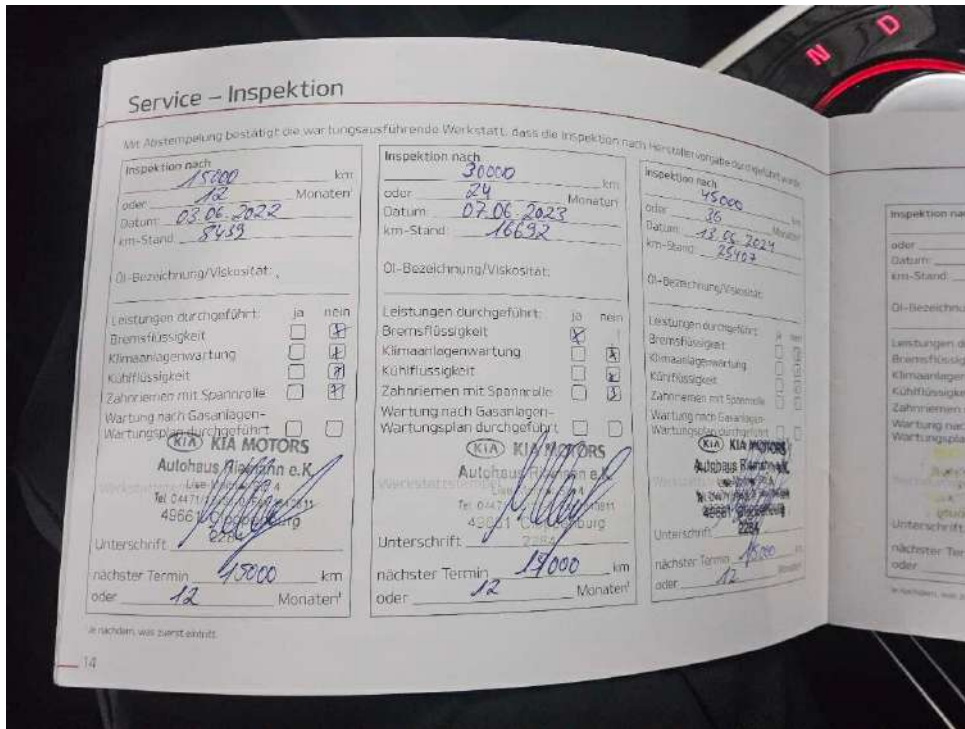 N D
Service – Inspektion
Mit Abstempelung bestätigt die wartungsausführende Werkstatt, dass die Inspektion nach Herstellervorgabe durchgeführt wurde.
Inspektion nach
15000 km
oder 12 Monaten¹
Datum: 03.06.2022
km-Stand 8439
Öl-Bezeichnung/Viskosität:
Leistungen durchgeführt: ja nein
Bremsflüssigkeit
Klimaanlagenwartung
Kühlflüssigkeit
Zahnriemen mit Spannrolle
Wartung nach Gasanlagen-
Wartungsplan durchgeführt
KIA KIA MOTORS
Autohaus Riemann e.K.
Tel. 04471/
49661 Cloppenburg
2284
Unterschrift
nächster Termin 15000 km
oder 12 Monaten¹
Inspektion nach
30000 km
oder 24 Monaten¹
Datum: 07.06.2023
km-Stand: 16692
Öl-Bezeichnung/Viskosität:
Leistungen durchgeführt: ja nein
Bremsflüssigkeit
Klimaanlagenwartung
Kühlflüssigkeit
Zahnriemen mit Spannrolle
Wartung nach Gasanlagen-
Wartungsplan durchgeführt
KIA KIA MOTORS
Autohaus Riemann e.K.
49661 Cloppenburg
2284
Unterschrift
nächster Termin 15000 km
oder 12 Monaten¹
Inspektion nach
45000 km
oder 36 Monaten
Datum: 13.06.2024
km-Stand: 25407
Öl-Bezeichnung/Viskosität:
Leistungen durchgeführt: ja nein
Bremsflüssigkeit
Klimaanlagenwartung
Kühlflüssigkeit
Zahnriemen mit Spannrolle
Wartung nach Gasanlagen-
Wartungsplan durchgeführt
KIA KIA MOTORS
Autohaus Riemann e.K.
49661 Cloppenburg
2284
Unterschrift
nächster Termin 15000 km
oder 12 Monaten
Je nachdem, was zuerst eintritt.
14
Inspektion nac
oder
Datum:
km-Stand:
Öl-Bezeichnu
Leistungen d
Bremsflüssig
Klimaanlagen
Kühlflüssigke
Zahnriemen
Wartung nac
Wartungspla
Unterschrift
nächster Ter
oder